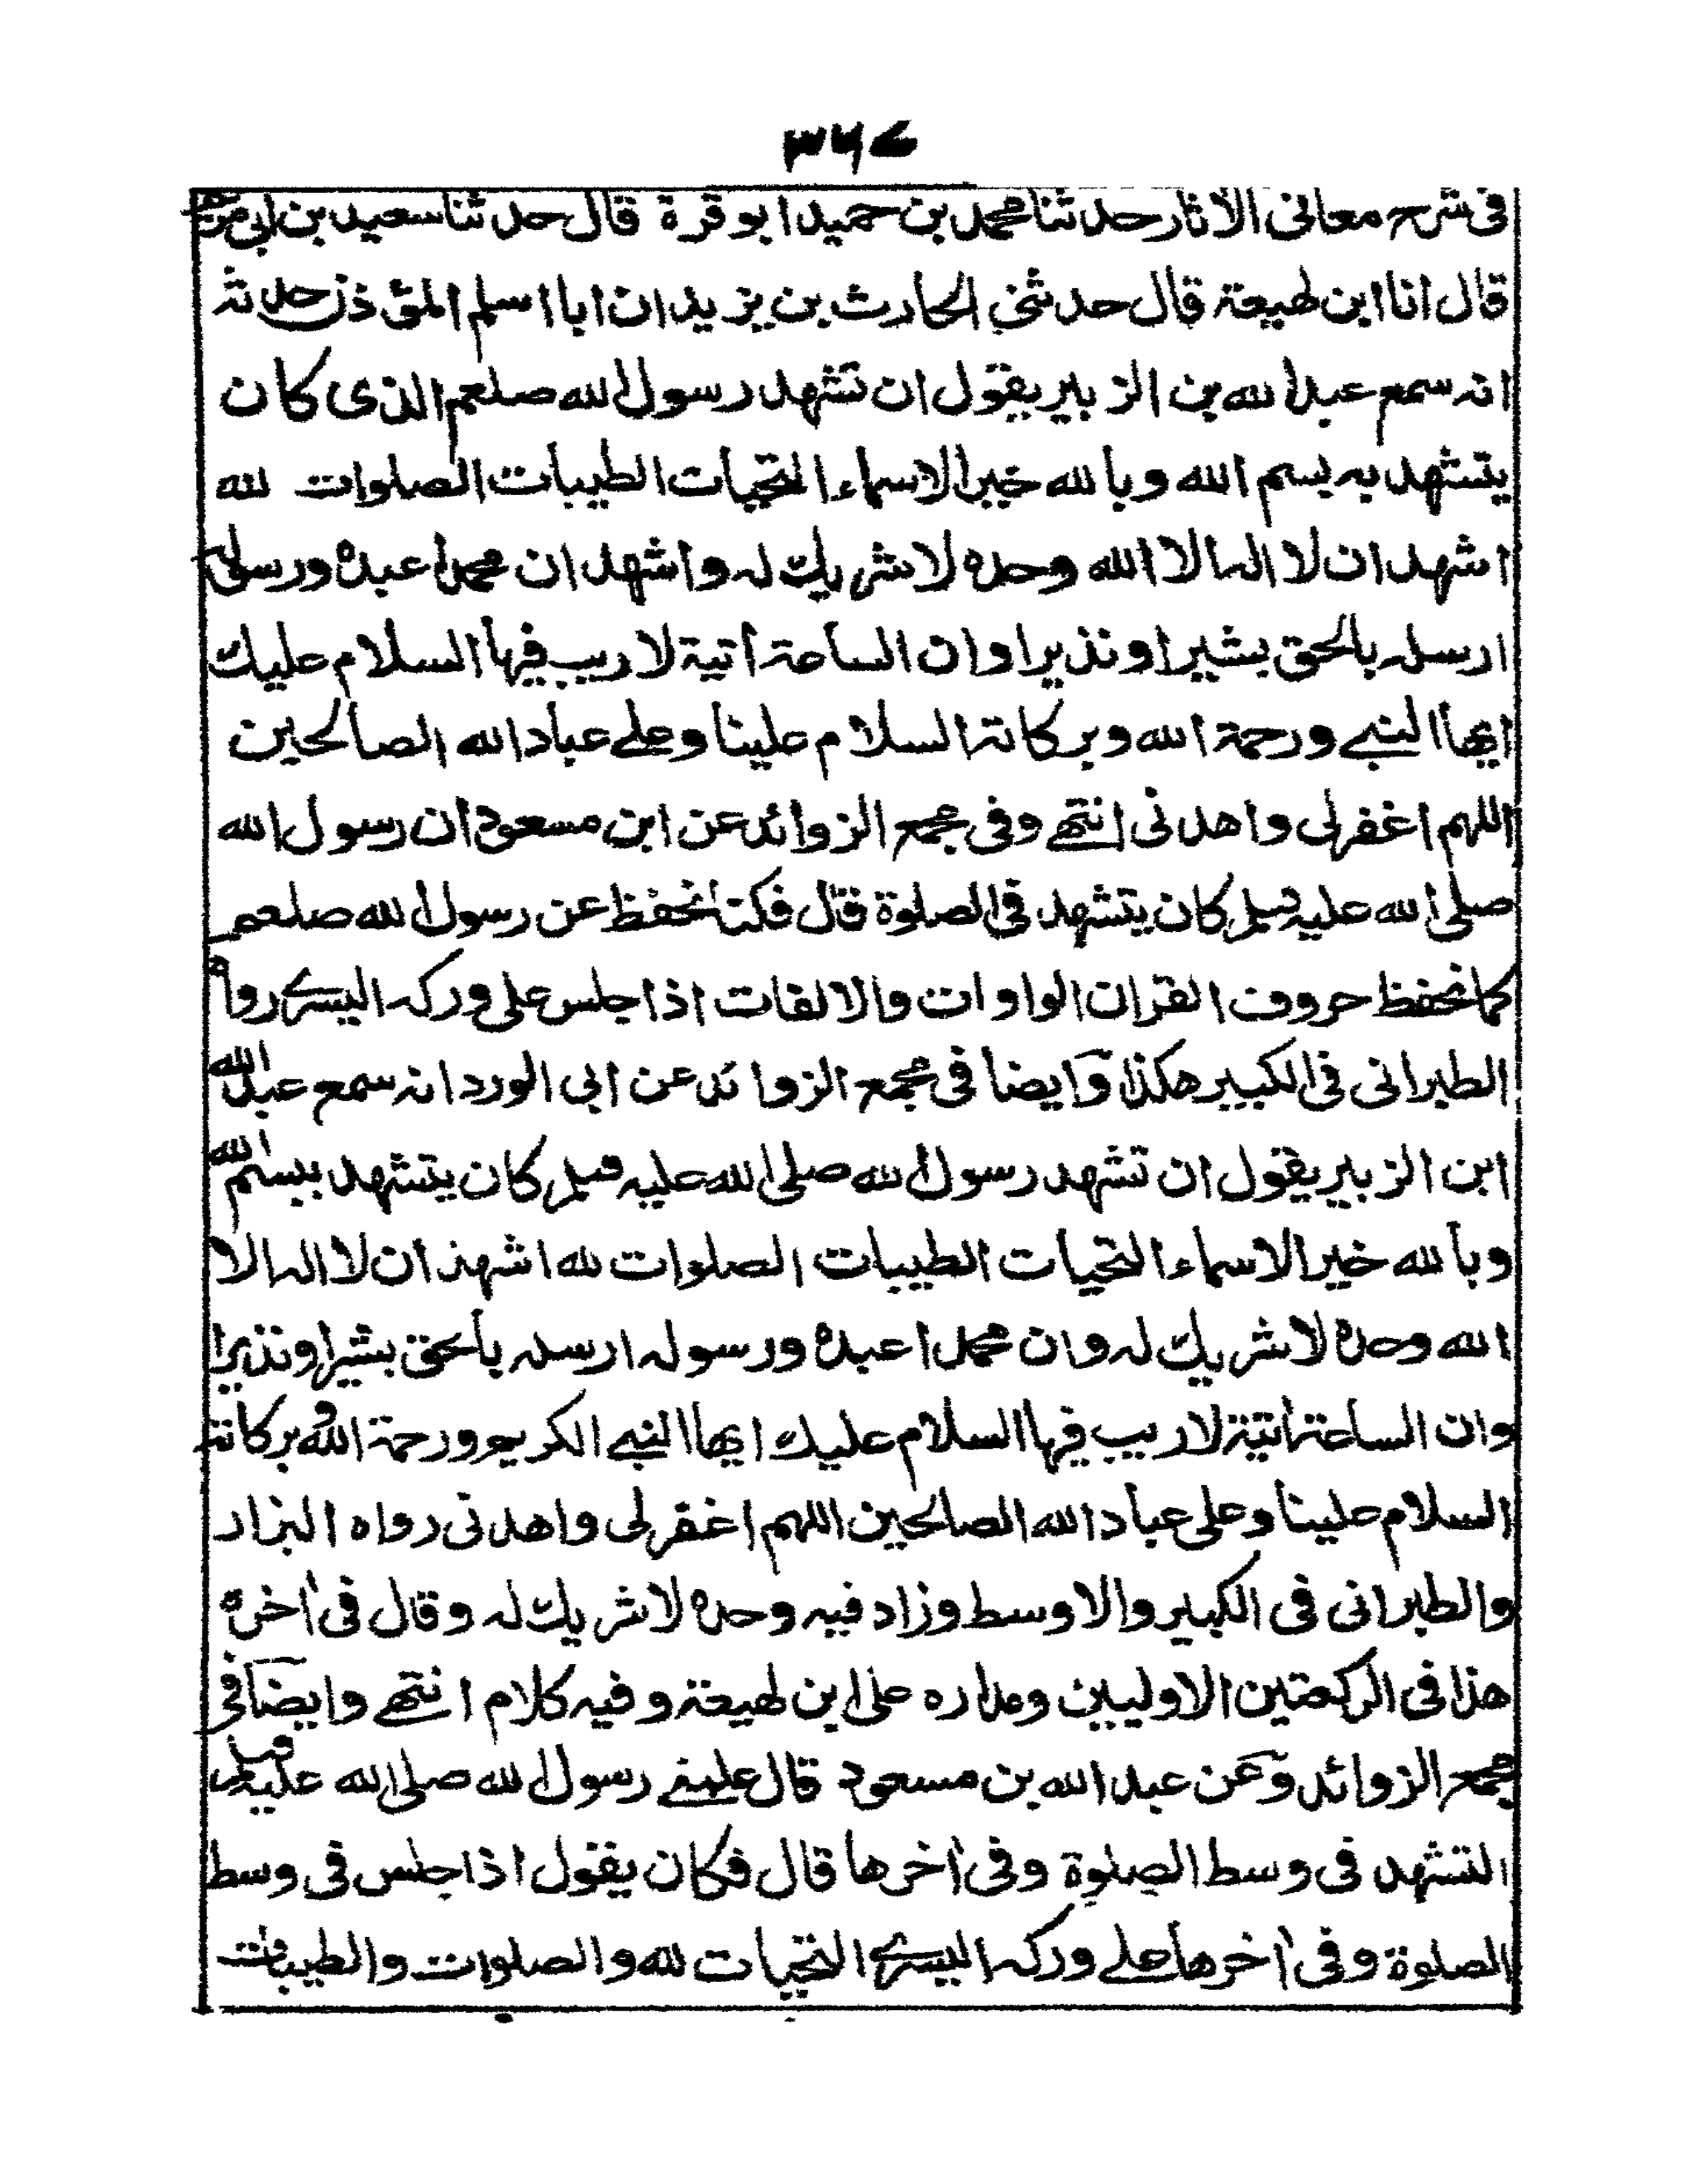 ۳۶۷
فی شرح معانی الاثار حدثنا محمد بن حمید ابو قرة قال حدثنا سعید بن ابی مریم
قال انا ابن لهیعة قال حدثنی الحارث بن یزید ان ابا اسلم المؤذن حدثه
انه سمع عبد الله بن الزبیر یقول ان تشهد رسول الله صلعم الذی کان
یتشهد به بسم الله وبالله خیر الاسماء التحیات الطیبات الصلوات لله
اشهد ان لا اله الا الله وحده لا شریك له واشهد ان محمدا عبده ورسوله
ارسله بالحق بشیرا ونذیرا وان الساعة اتیة لا ریب فیها السلام علیك
ایها النبے ورحمة الله وبرکاته السلام علینا وعلے عباد الله الصالحین
اللهم اغفرلی واهدنی انتهے وفی مجمع الزوائد عن ابن مسعود ان رسول الله
صلی الله علیه وسلم کان یتشهد فی الصلوة قال فکنا نحفظ عن رسول الله صلعم
کما نحفظ حروف القران الواوات والالفات اذا جلس علی ورکه الیسرے رواه
الطبرانی فی الکبیر هکذا وایضا فی مجمع الزوائد عن ابی الورد انه سمع عبد الله
ابن الزبیر یقول ان تشهد رسول الله صلی الله علیه وسلم کان یتشهد ببسم الله
وبالله خیر الاسماء التحیات الطیبات الصلوات لله اشهد ان لا اله الا
الله وحده لا شریك له وان محمدا عبده ورسوله ارسله بالحق بشیرا ونذیرا
وان الساعة اتیة لا ریب فیها السلام علیك ایها النبے الکریم ورحمة الله وبرکاته
السلام علینا وعلی عباد الله الصالحین اللهم اغفرلی واهدنی رواه البزار
والطبرانی فی الکبیر والاوسط وزاد فیه وحده لا شریك له وقال فی اخره
هذا فی الرکعتین الاولیین ومداره علی ابن لهیعة وفیه کلام انتهے وایضا فی
مجمع الزوائد وعن عبد الله بن مسعود قال علمنے رسول الله صلی الله علیه وسلم
التشهد فی وسط الصلوة وفی اخرها قال فکان یقول اذا جلس فی وسط
الصلوة وفی اخرها علے ورکه الیسرے التحیات لله والصلوات والطیبات